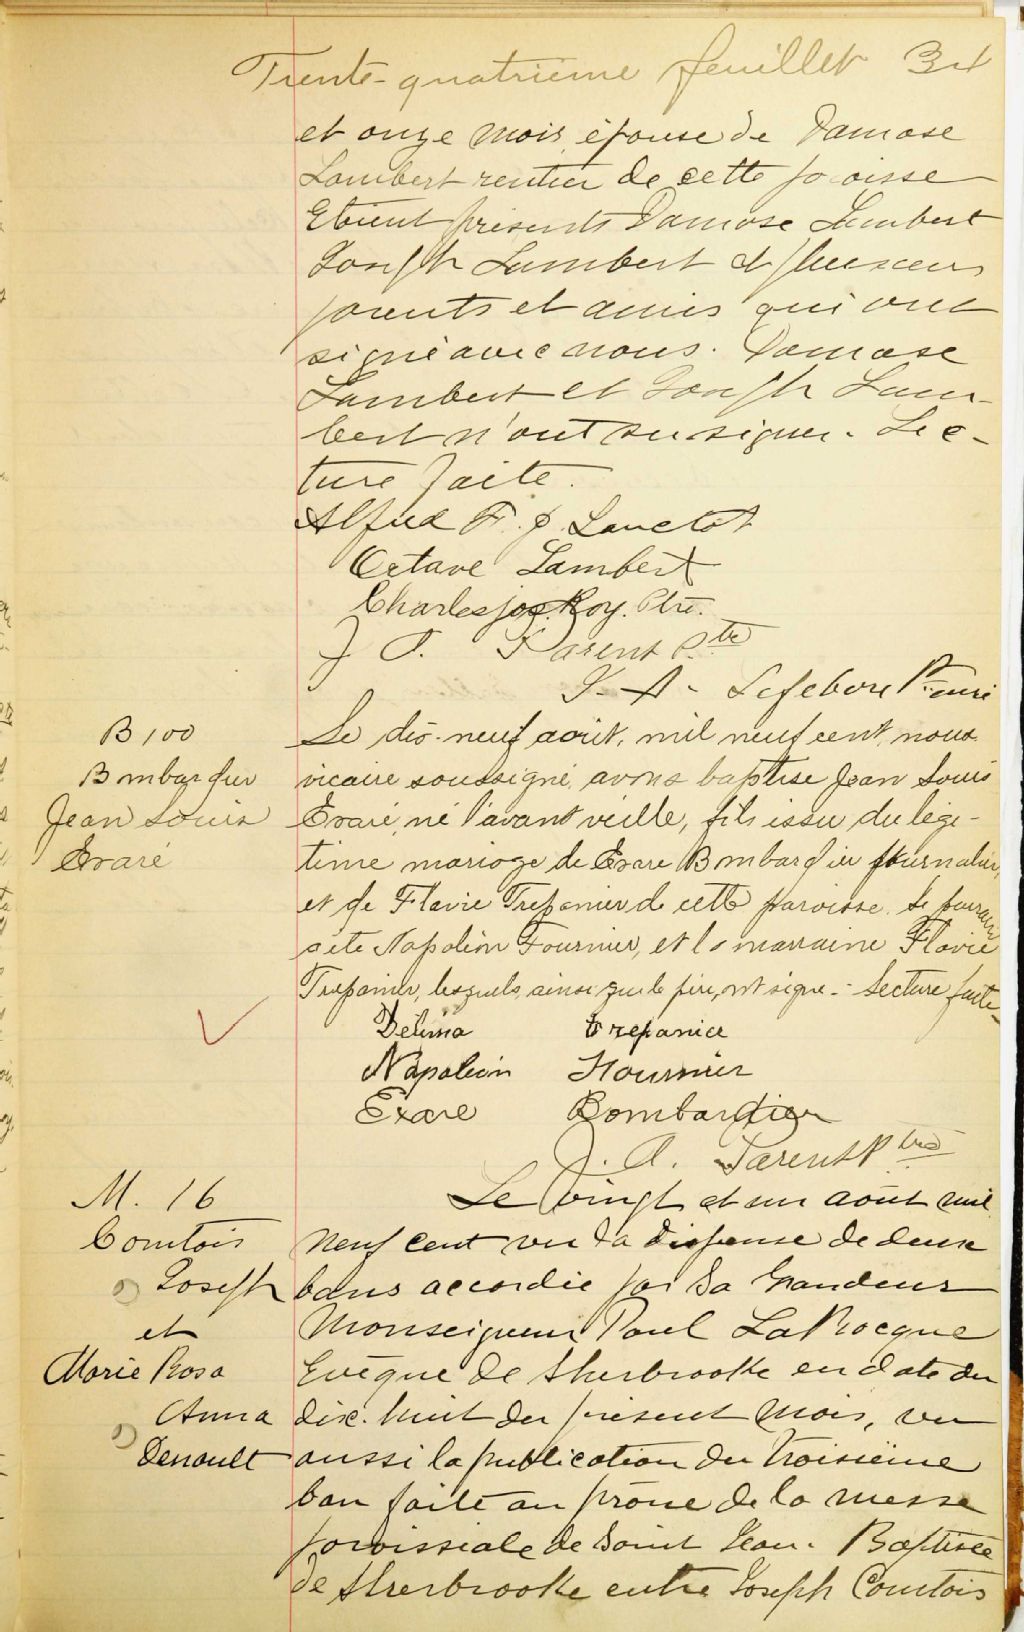 Trente-quatrième feuillet 34
et onze mois, épouse de Damase
Lambert rentier de cette paroisse
Etaient présents Damase Lambert
Joseph Lambert et plusieurs
parents et amis qui ont
signé avec nous. Damase
Lambert et Joseph Lam-
bert n'ont su signer. Lec-
ture faite.
Alfred F. J. Lanctot
Octave Lambert
Charles jos. Roy. Ptre.
J A. Parent Ptre
J. A. Lefebvre Ptre curé
B 100
Bombardier
Jean Louis
Exaré
Le dix-neuf août, mil neuf cent, nous
vicaire soussigné, avons baptisé Jean Louis
Exaré, né l'avant veille, fils issu du légi-
time mariage de Exare Bombardier journalier,
et de Flavie Trepanier de cette paroisse. Le parrain
a été Napoléon Fournier, et la marraine Flavie
Trepanier, lesquels, ainsi que le père, ont signé.- Lecture faite-
Délima Trepanier
Napoleon Fournier
Exare Bombardier
J. A. Parent Ptre
M. 16
Comtois
Joseph
et
Marie Rosa
Anna
Denault
Le vingt et un août mil
neuf cent vu la dispense de deux
bans accordée par Sa Grandeur
Monseigneur Paul LaRocque
Evêque de Sherbrooke en date du
dix-huit du présent mois, vu
aussi la publication du troisième
ban faite au prône de la messe
paroissiale de Saint Jean-Baptiste
de Sherbrooke entre Joseph Comtois